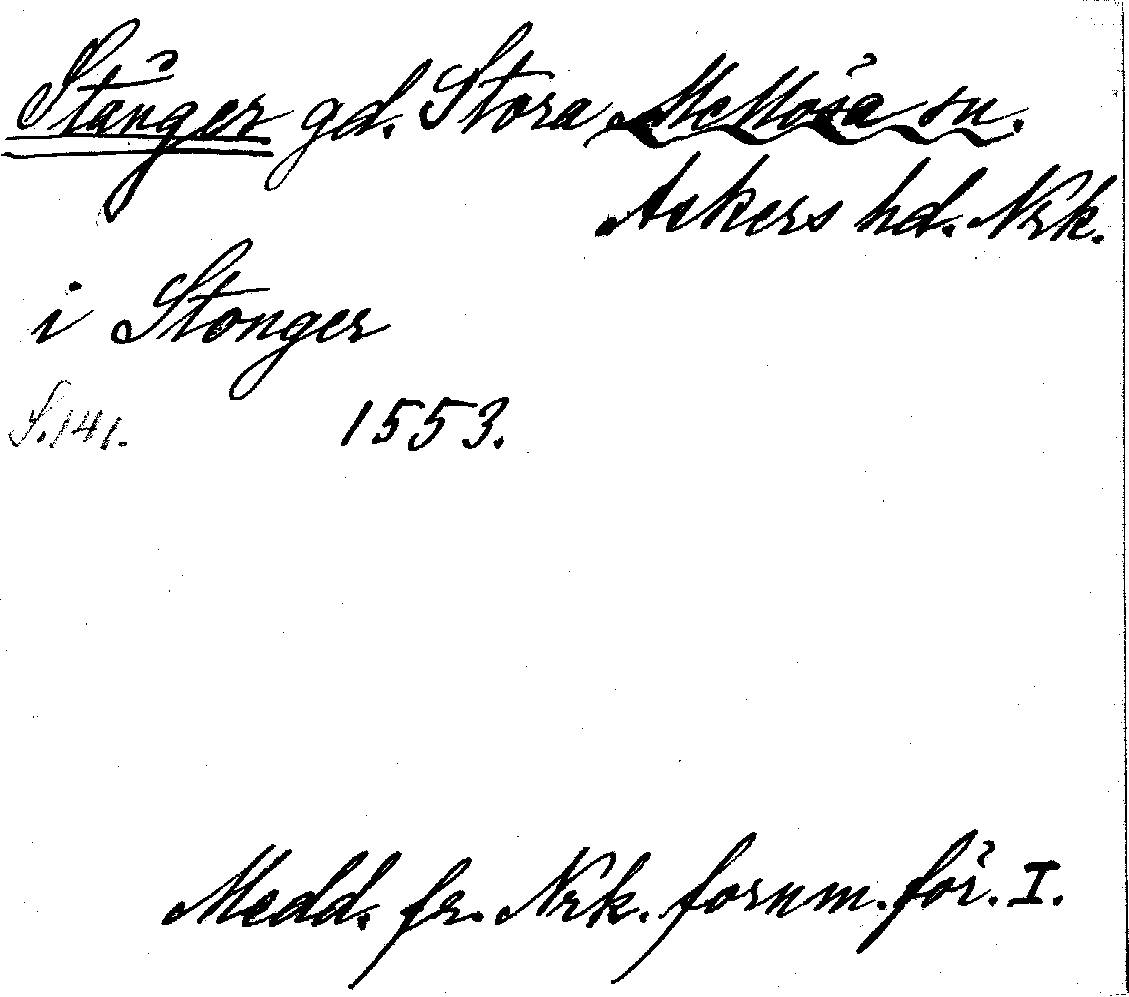 Stånger gd. Stora Mellösa sn.
Askers hd. Nrk.
i Stonger
S. 141. 1553.
Medd. fr. Nrk. fornm. för. I.